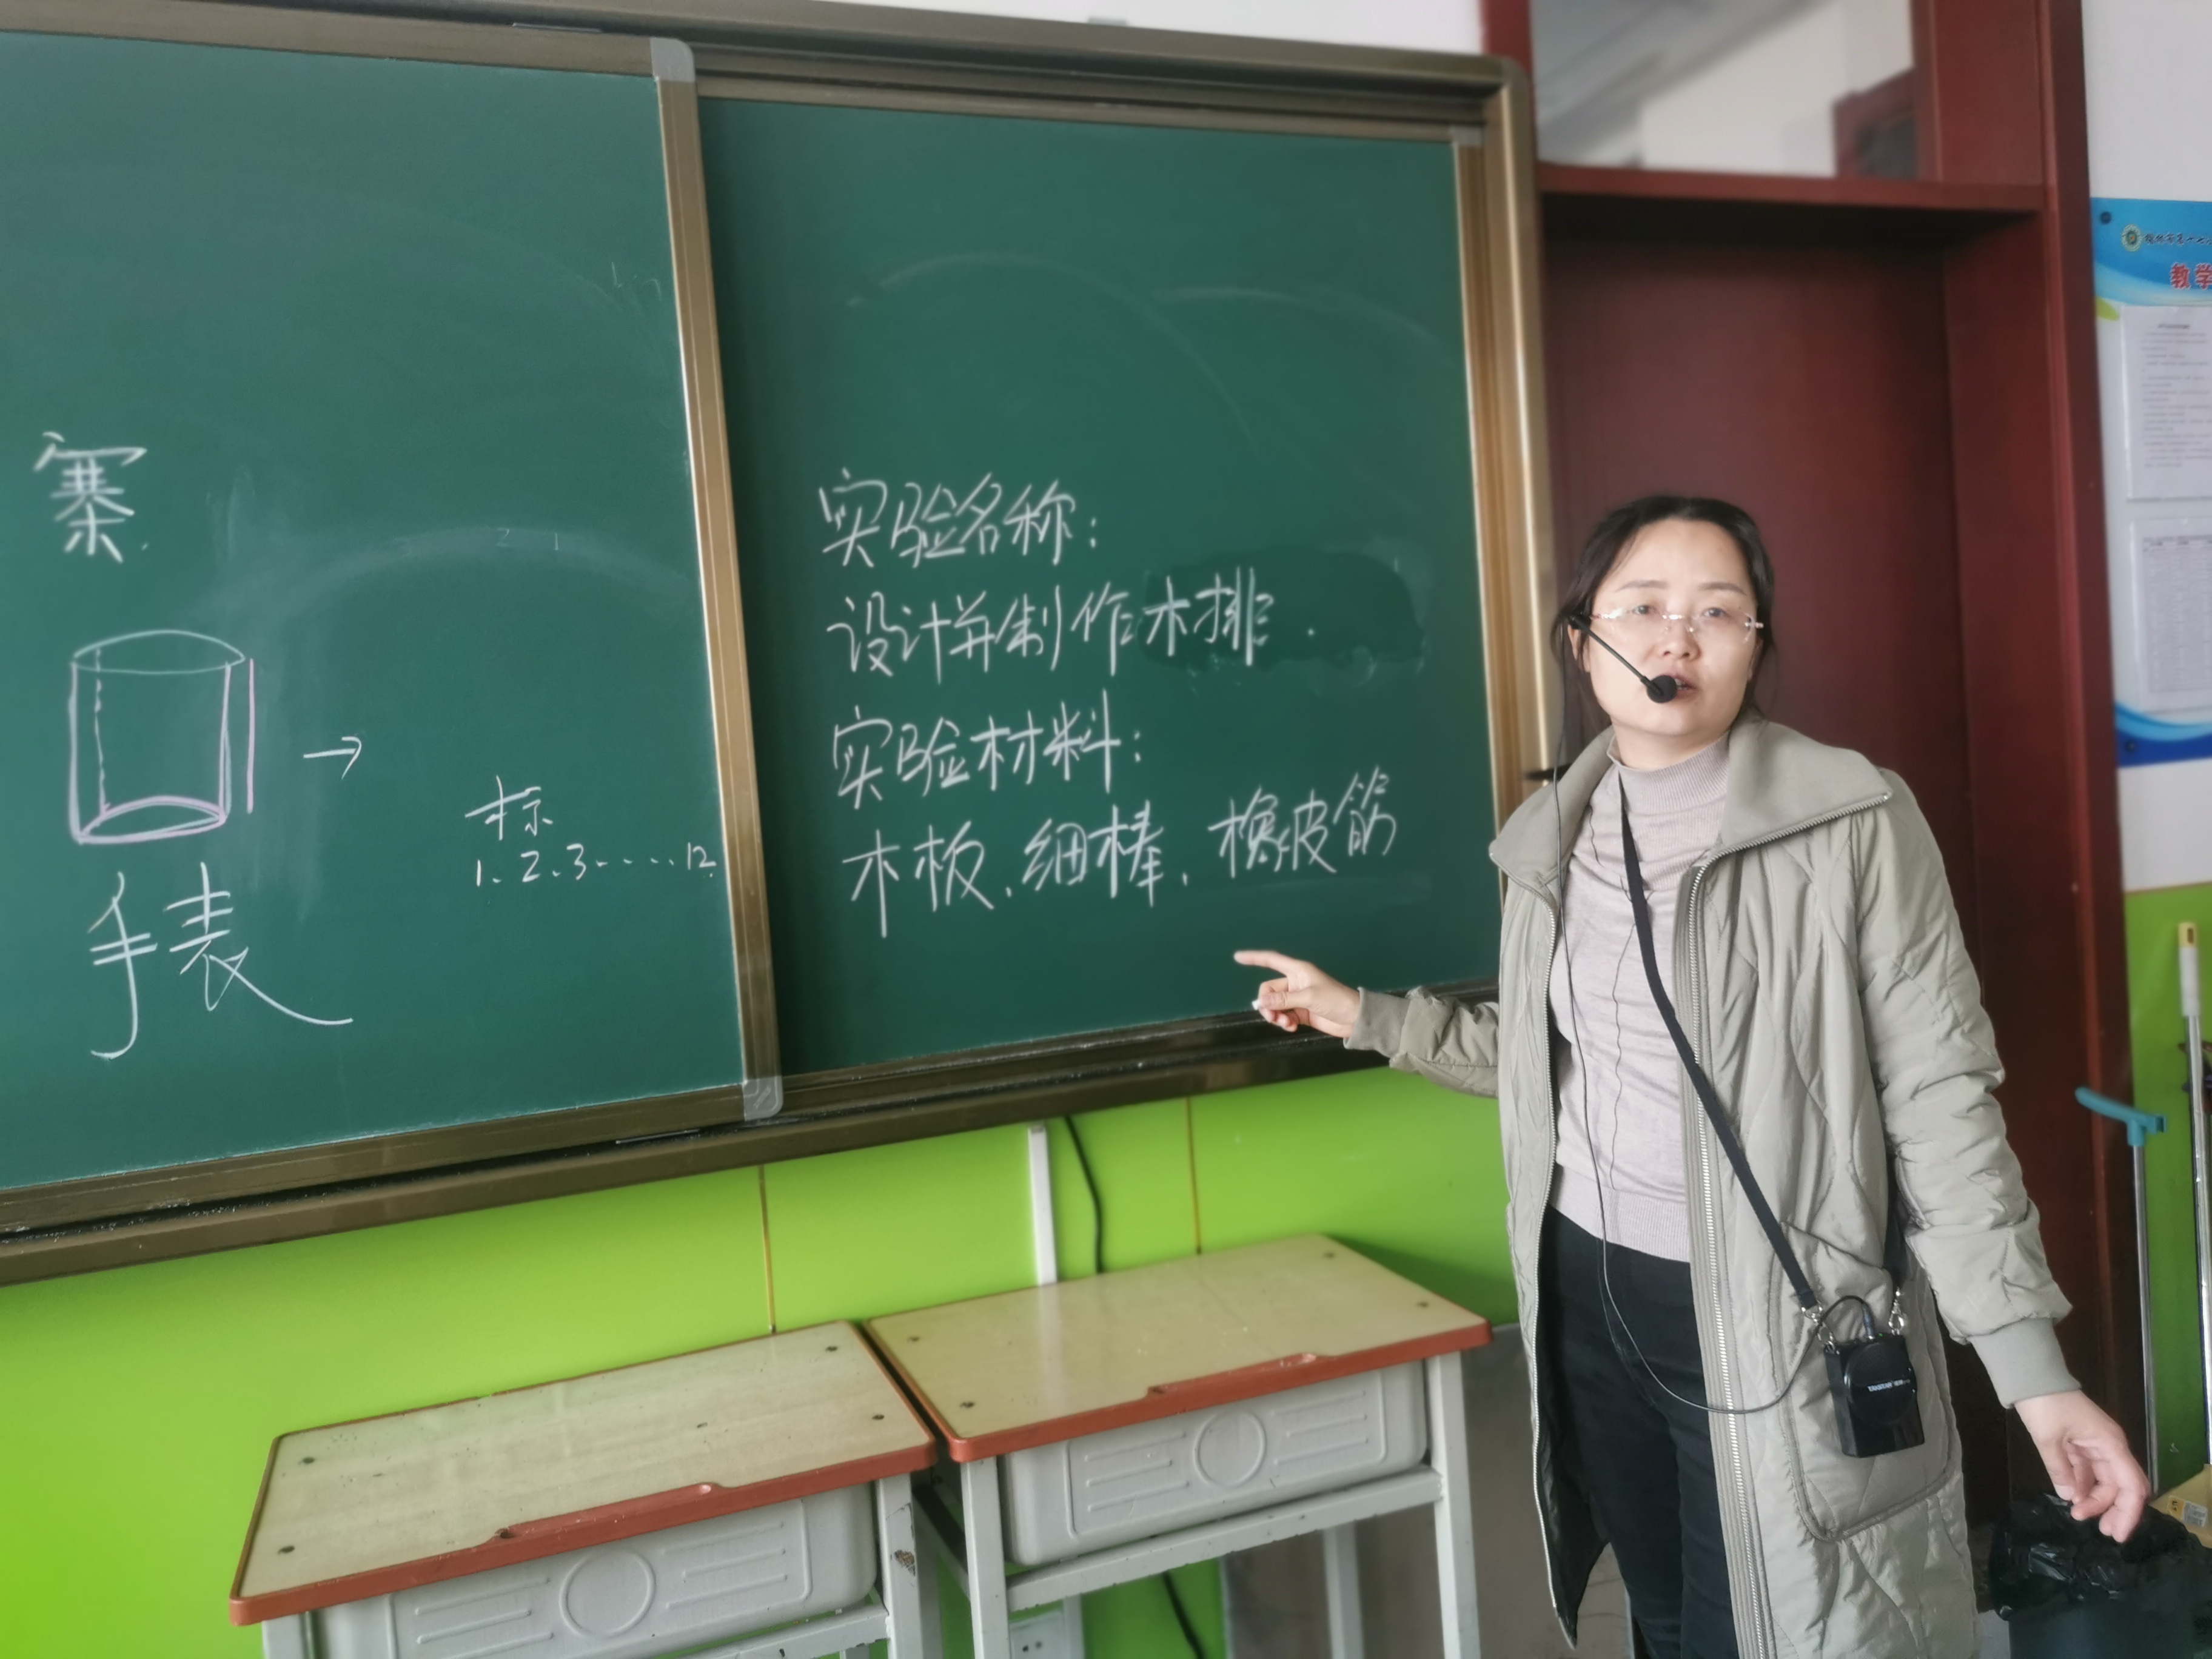 寨
→
标
1、2、3……12
手表
实验名称：
设计并制作木排.
实验材料：
木板、细棒、橡皮筋
教学